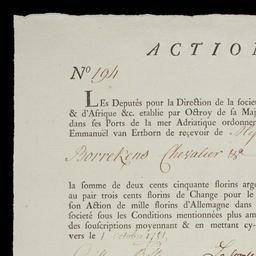 ACTION
Nº 194
LEs Deputés pour la Direction de la socie
& d'Afrique &c. etablie par Octroy de sa Maj
dans ses Ports de la mer Adriatique ordonne
Emmanuel van Ertborn de reçevoir de
Borrekens Chevalier &c
la somme de deux cents cinquante florins arge
au pair trois cents florins de Change pour le
son Action de mille florins d'Allemagne dans
societé sous les Conditions mentionnées plus am
des souscriptions moyennant & en mettant cy
vers le 1 octobre 1781